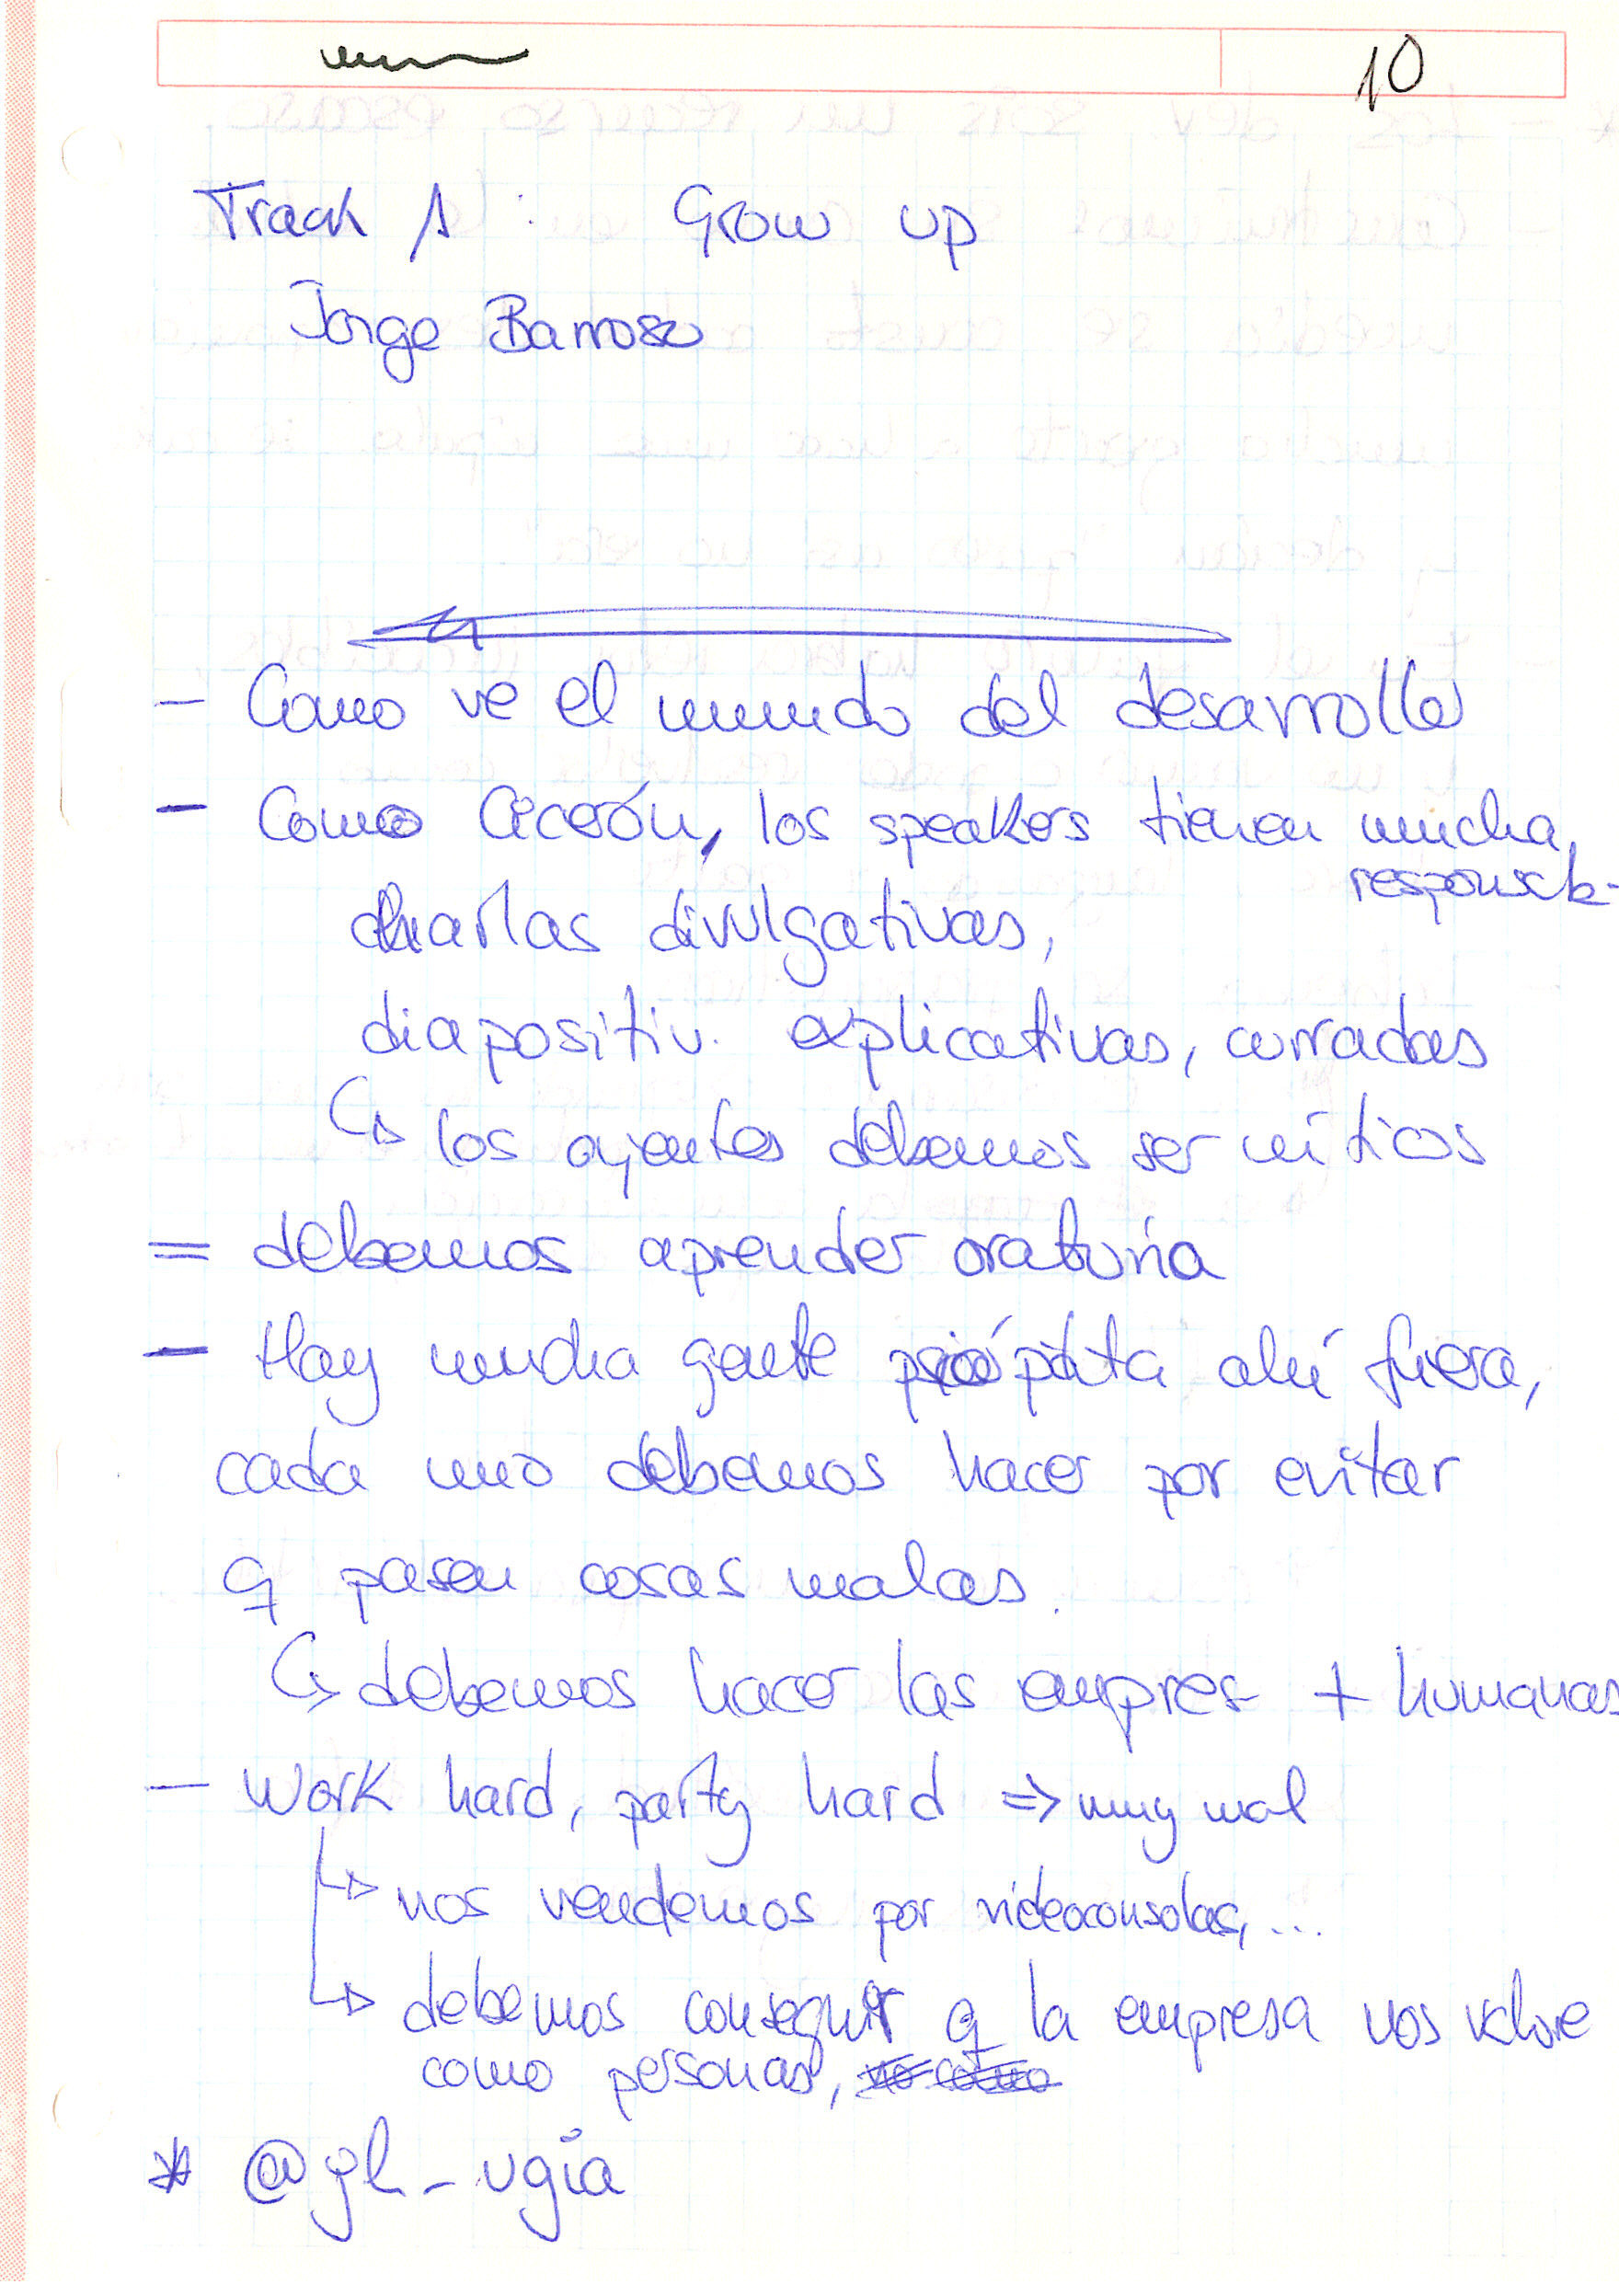 10
Track 1: Grow up
Jorge Barroso
- Como ve el mundo del desarrollo
- Como Cicerón, los speakers tienen mucha
responsab-
charlas divulgativas,
diapositiv. explicativas, curradas
↳ los oyentes debemos ser críticos
= debemos aprender oratoria
- Hay mucha gente psicópata ahí fuera,
cada uno debemos hacer por evitar
q pasen cosas malas.
↳ debemos hacer las empres + humanas
- Work hard, party hard => muy mal
↳ nos vendemos por videoconsolas,...
↳ debemos conseguir q la empresa nos valore
como personas, no como
* @gh_ugia